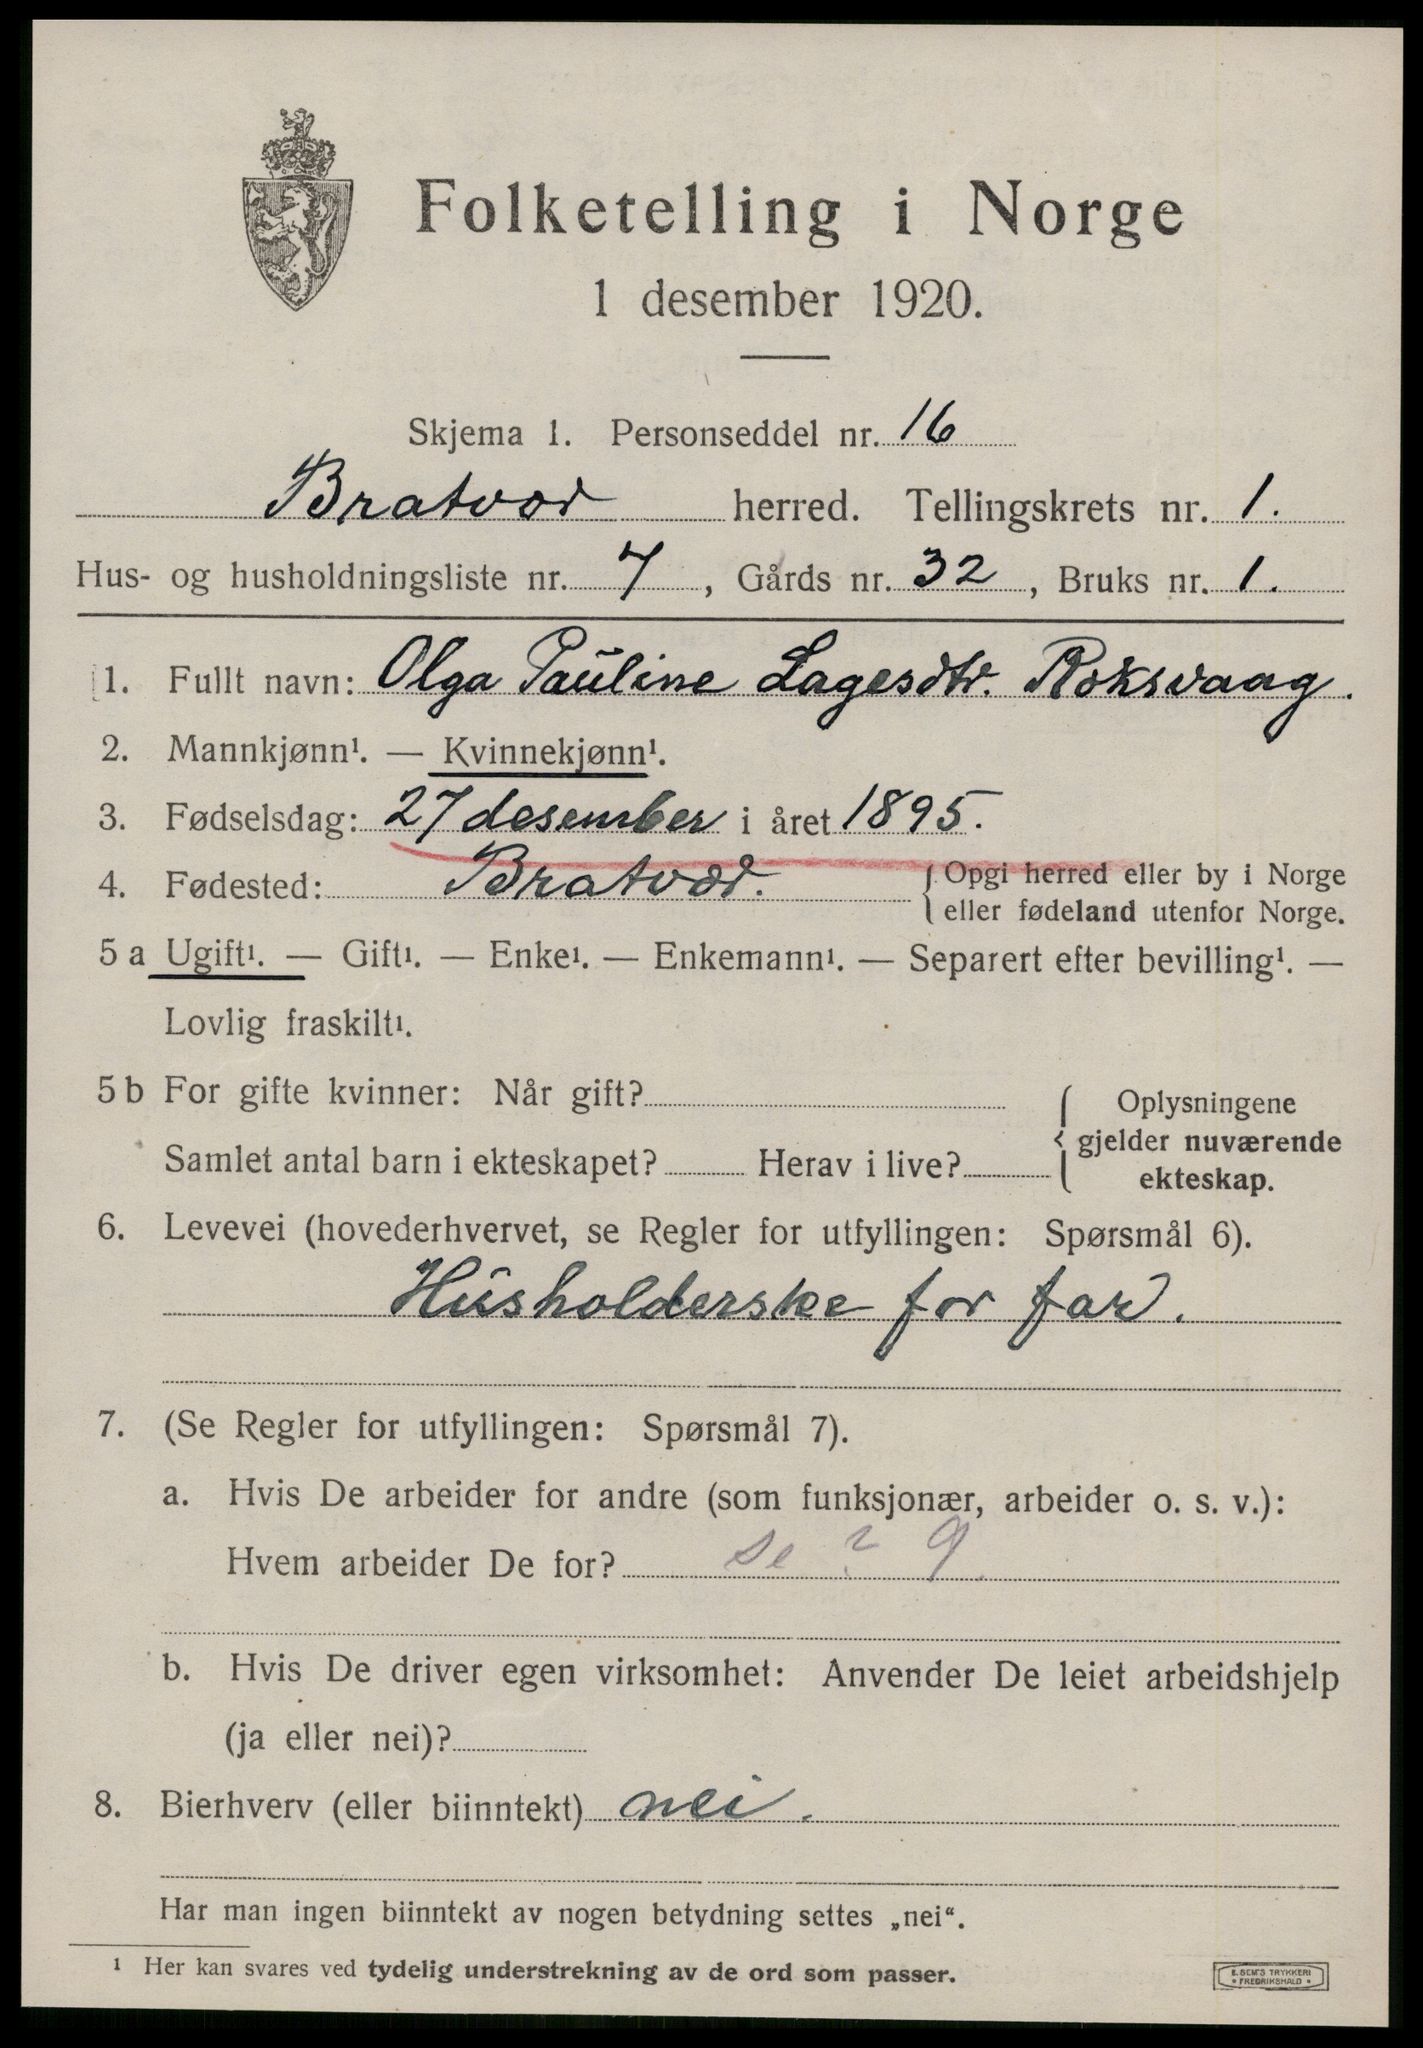 Folketelling i Norge
1 desember 1920.
Skjema 1. Personseddel nr. 16
Bratvær herred. Tellingskrets nr. 1.
Hus- og husholdningsliste nr. 7, Gårds nr. 32, Bruks nr. 1.
1. Fullt navn: Olga Pauline Lagesdtr. Roksvaag.
2. Mannkjønn¹. — Kvinnekjønn¹.
3. Fødselsdag: 27 desember i året 1895.
4. Fødested: Bratvær. { Opgi herred eller by i Norge
eller fødeland utenfor Norge.
5 a Ugift¹. — Gift¹. — Enke¹. — Enkemann¹. — Separert efter bevilling¹. —
Lovlig fraskilt¹.
5 b For gifte kvinner: Når gift?
Samlet antal barn i ekteskapet? Herav i live?
{ Oplysningene
gjelder nuværende
ekteskap.
6. Levevei (hovederhvervet, se Regler for utfyllingen: Spørsmål 6).
Husholderske for far.
7. (Se Regler for utfyllingen: Spørsmål 7).
a. Hvis De arbeider for andre (som funksjonær, arbeider o. s. v.):
Hvem arbeider De for? se ? 9.
b. Hvis De driver egen virksomhet: Anvender De leiet arbeidshjelp
(ja eller nei)?
8. Bierhverv (eller biinntekt) nei.
Har man ingen biinntekt av nogen betydning settes „nei“.
¹ Her kan svares ved tydelig understrekning av de ord som passer.
E. SEM'S TRYKKERI
• FREDRIKSHALD •